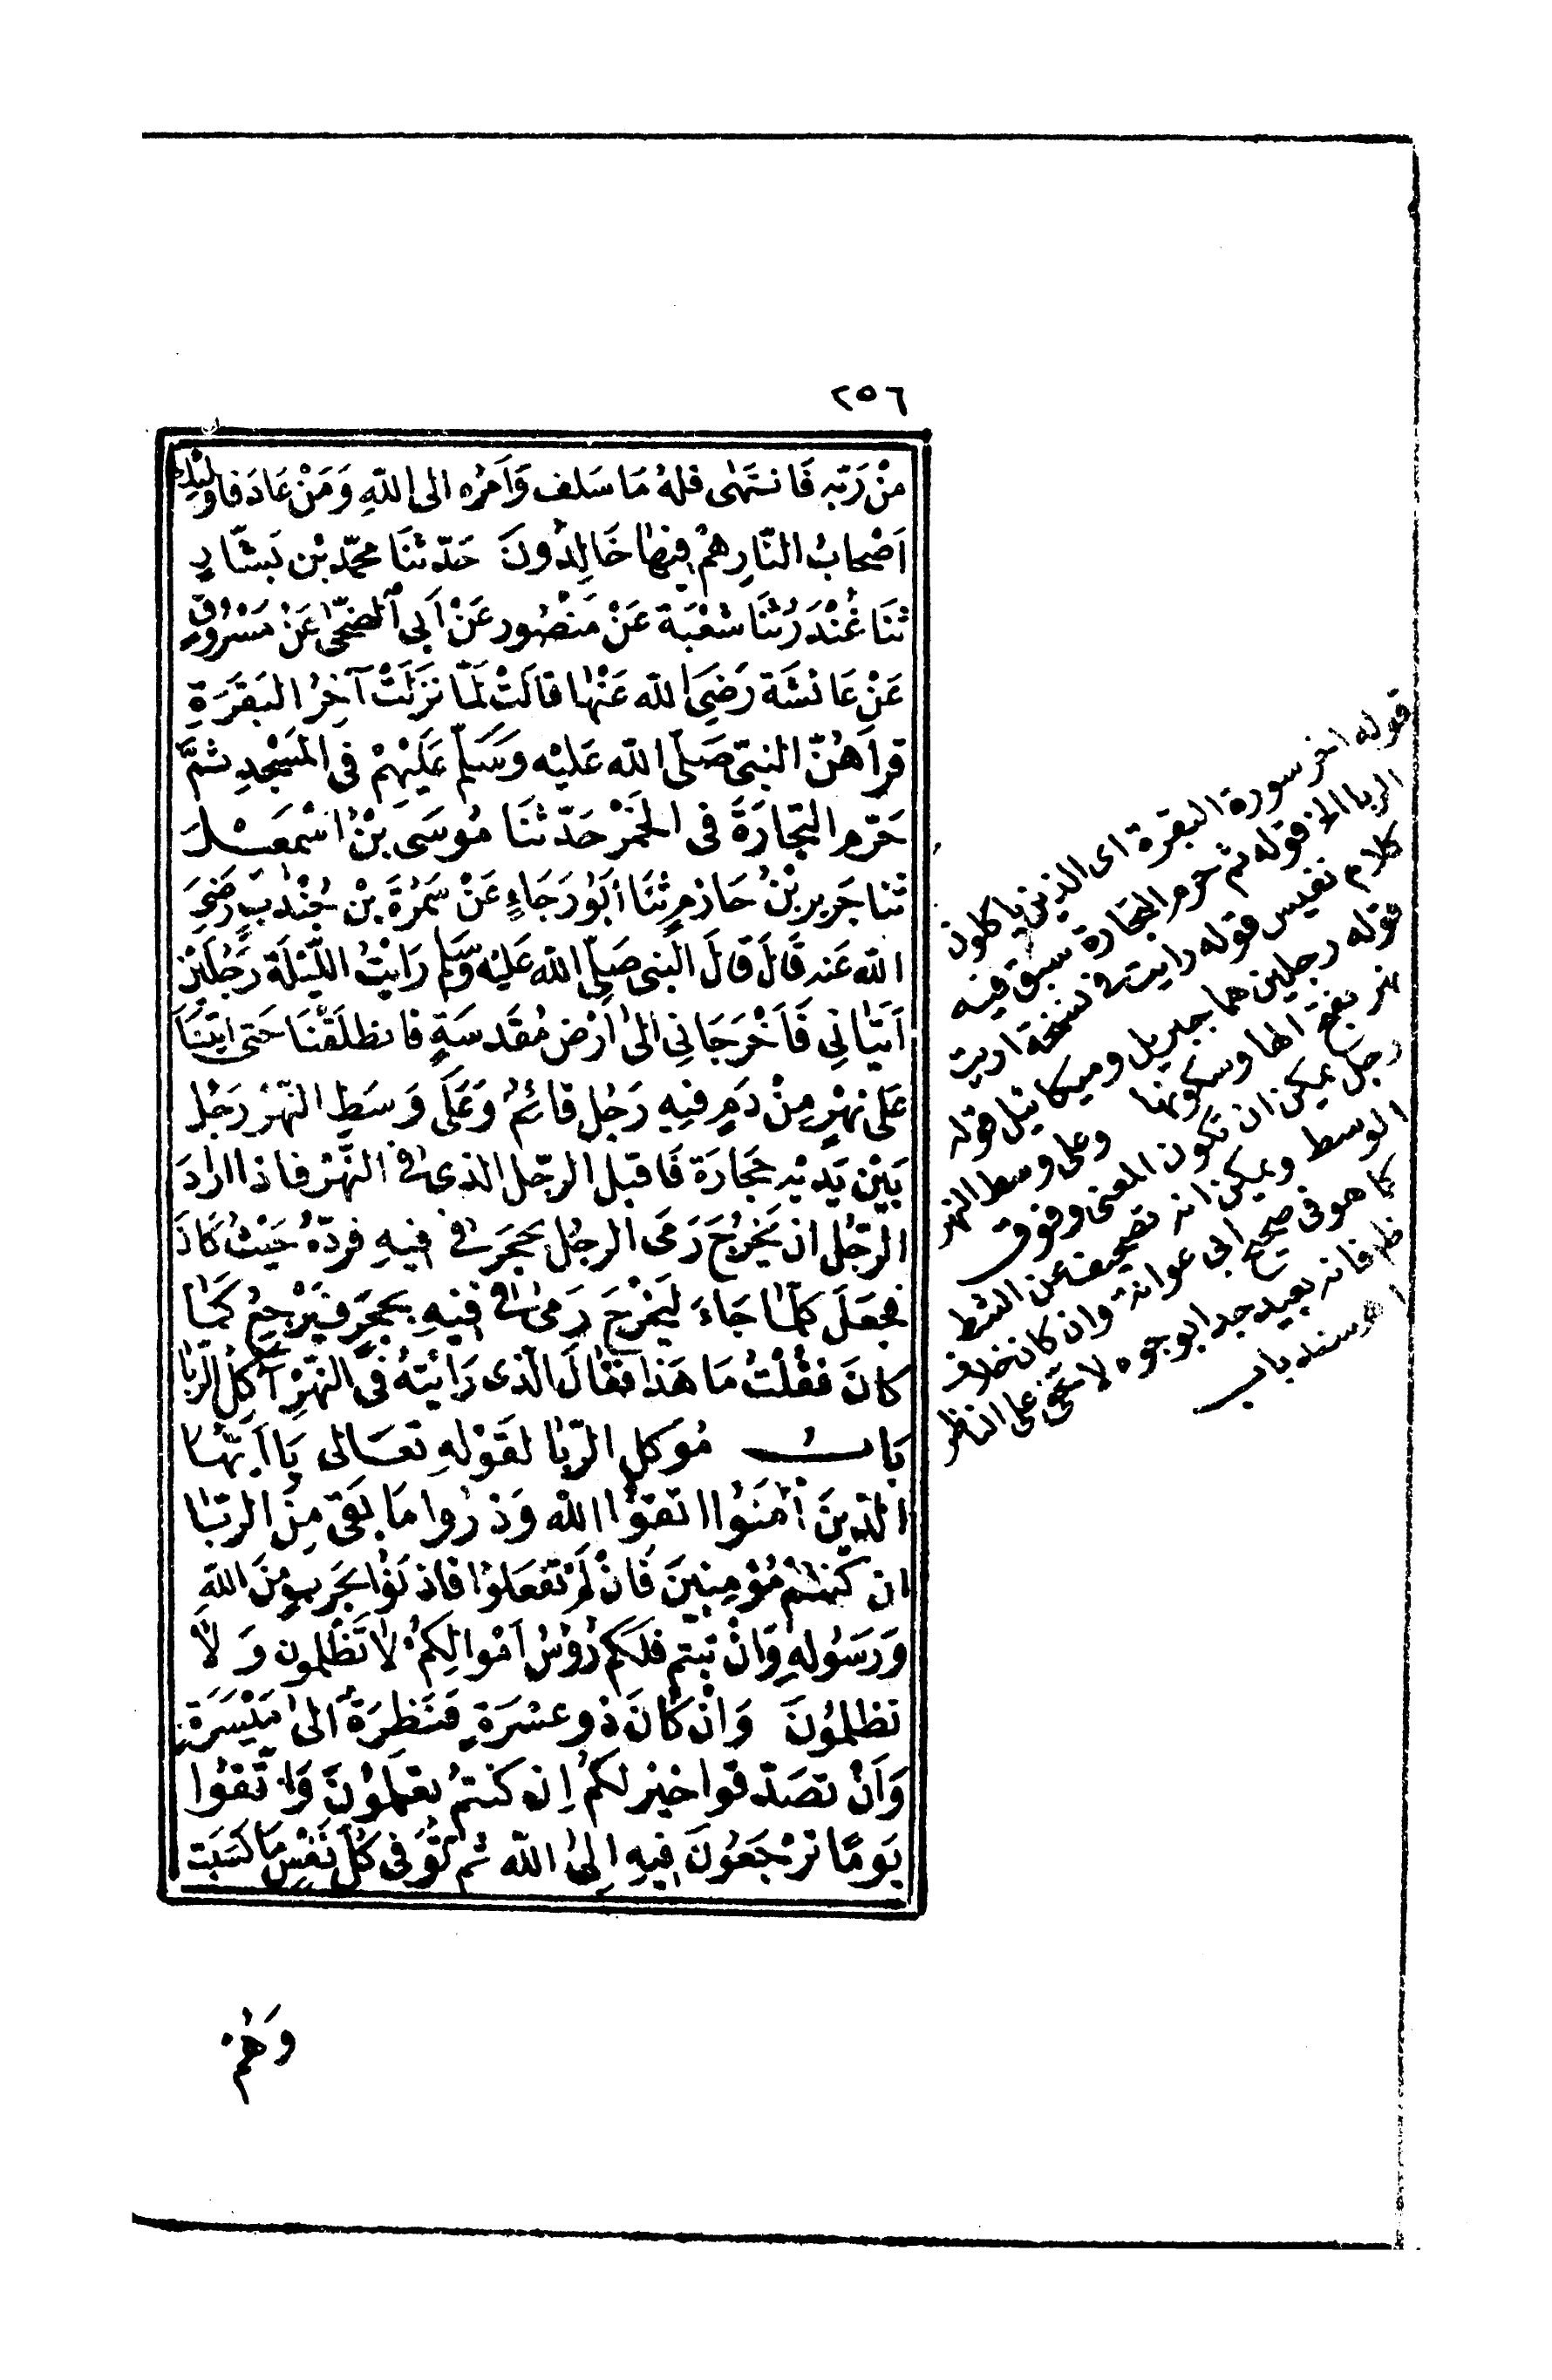 ٢٥٦
مِنْ رَبِّهِ فَانتَهٰى فلهُ مَا سَلف وَاَمْرُه الى اللّهِ وَمَنْ عَادَ فاولئِكَ
اَصْحابُ النّارِ هُمْ فيهَا خَالِدُونَ حَدّثنَا محمّد بْن بَشّارٍ
ثنَا غُنْدَرُ ثنَا شعْبَة عَنْ مَنْصُور عَنْ اَبى الضّحٰى عَنْ مَسْرُوقٍ
عَنْ عَائشَة رَضِىَ الله عَنْها قالَتْ لَمّا نزَلَتْ آخِرُ البَقَرَةِ
قرأهُنّ النبىّ صَلّى الله عَليْه وَسَلّم عَلَيْهِمْ فى المَسْجِدِ ثمَّ
حَرّم التجَارَةَ فى الخَمْرْ حَدّثنَا مُوسَى بْنُ اسْمعيْلَ
ثنا جَرير بْنُ حَازمٍ ثنَا أبَوُ رَجَاءٍ عَنْ سَمُرَةَ بْن جُنْدبٍ رَضىَ
الله عَنه قَالَ قالَ النبى صَلى الله عَليْه وَسَلّم رَايْتُ اللّيْلَة رَجُلَيْن
اَتَيَانِى فَاَخْرَجَانِى الىٰ اَرْض مُقَدسَةٍ فانطلَقْنَا حَتى اتيْنَا
عَلى نهَرٍ مِنْ دَمٍ فيهِ رَجُل قائمُ وَعَلَى وَسَطِ النّهَرْ رَجُل
بَيْن يَدَيْهِ حِجَارَة فَاقبل الرّجُل الذى فى النّهَرْ فاذا ارادَ
الرّجُل ان يَخرُجَ رَمَى الرجُل بحَجَر فى فيهِ فردّهُ حَيْثُ كَانَ
فجعَلَ كلّمَا جَاءَ ليَخْرجَ رَمىٰ فى فيهِ بحجَرٍ فيَرْجعُ كمَا
كانَ فقُلْتُ مَا هَذا فقَالَ الّذى رَايْتهُ فى النهَرْ آكلُ الرّبَا
بَابُ مُوكل الرّبَا لقَوْلهِ تعَالى يَا اَيّهَا
الّذينَ آمَنوُا اتقوُا الله وَذرُوا مَا بَقىَ مِنَ الرّبَا
ان كُنتمْ مُؤْمِنينَ فَانْ لَمْ تفعَلوُا فاذنوُا بحَرْبٍ مِنَ اللّهِ
وَرَسُولهِ وَانْ تبتم فلَكمْ رُؤسُ اَمْوالكمْ لا تَظْلمون وَلاَ
تظلمُونَ وَانْ كانَ ذو عسْرَةٍ فَنَظِرَةٌ الىٰ مَيْسَرَةٍ
وَاَنْ تصَدّقوا خير لكمْ اِن كنتمُ تعْلَمُونَ وَاتّقوُا
يَومًا ترْجَعُونَ فيهِ الىٰ اللّه ثم تُوَفى كلّ نَفْسٍ مَا كسَبَت
وَهُمْ
قوله اخر سورة البقرة اى الذين ياكلون
الربا الخ قوله ثم حرم التجارة سبق فيه
كلام نفيس قوله رايت فى نسخة اريت
قوله رجلين هما جبريل وميكائيل قوله
نهر بفتح الها وسكونها وعلى وسط النهر
رجل يمكن ان تكون المعنى وفوق
الوسط ويمكن انه تصحيف عن الشط
كما هو فى صحيح ابى عوانة وان كان خلاف
فانه بعيد جدا بوجوه لا تخفى على الناظر
اهـ سند باب